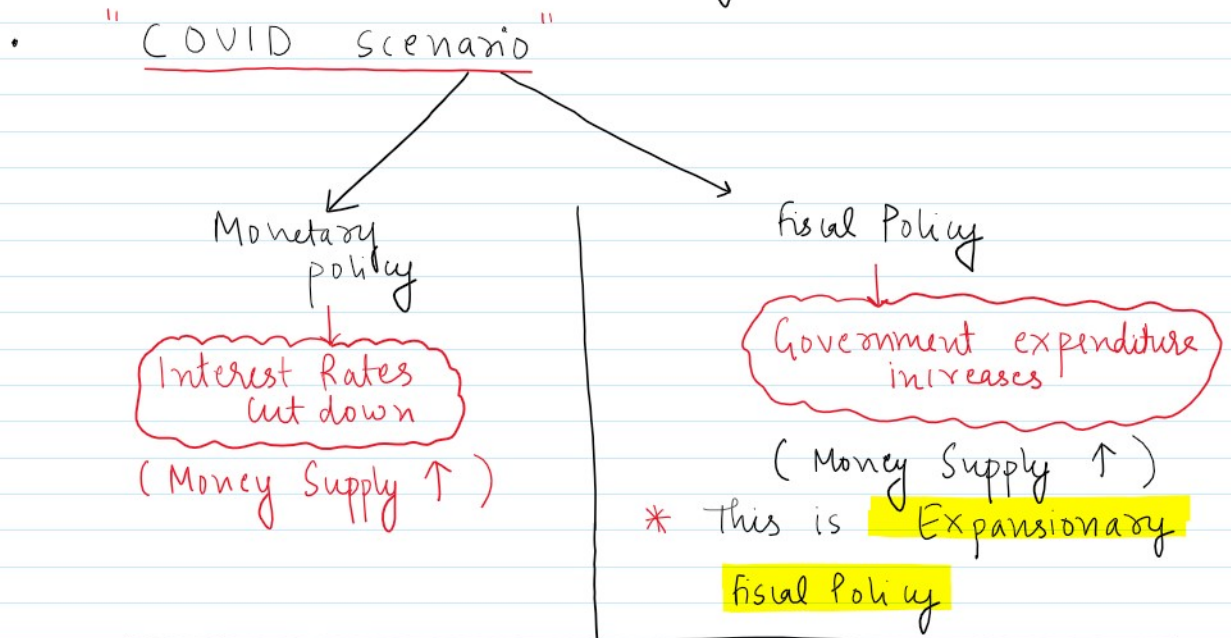 • "COVID Scenario"
Monetary
policy
Interest Rates
cut down
(Money Supply ↑)
Fiscal Policy
Government expenditure
increases
(Money Supply ↑)
* This is Expansionary
Fiscal Policy